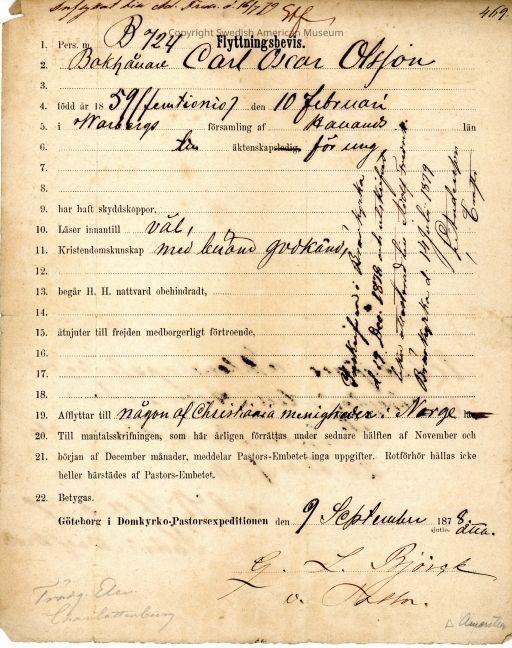 469.
Copyright Swedish American Museum
Flyttningsbevis.
1. Pers. m B 724
2. Bokhållare Carl Oscar Olsson
3.
4. född år 1859 (femtionio) den 10 februari
5. i Warbergs församling af Hallands län
6. äktenskap ledig, för ung,
7.
8.
9. har haft skyddskoppor,
10. Läser innantill väl,
11. Kristendomskunskap med beröm godkänd,
12.
13. begår H. H. nattvard obehindradt,
14.
15. åtnjuter till frejden medborgerligt förtroende,
16.
17.
18.
19. Afflyttar till någon af Christiania menigheder i Norge län
20. Till mantalsskrifningen, som här årligen förrättas under sednare hälften af November och
21. början af December månader, meddelar Pastors-Embetet inga uppgifter. Rotförhör hållas icke
eller härstädes af Pastors-Embetet.
22. Betygas.
Göteborg i Domkyrko-Pastorsexpeditionen den 9 September 1878
sjutio åtta.
G. L. Björck
v. Pastor.
i Brännkyrka
d. 19 Dec. 1878
Brännkyrka d. 14 Juli 1879
Trädg. Elev.
Charlottenburg